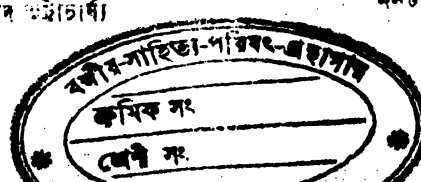 ভট্টাচার্য্য
বঙ্গীয়-সাহিত্য-পরিষৎ-গ্রন্থাগার
ক্রমিক সং
শ্রেণী সং